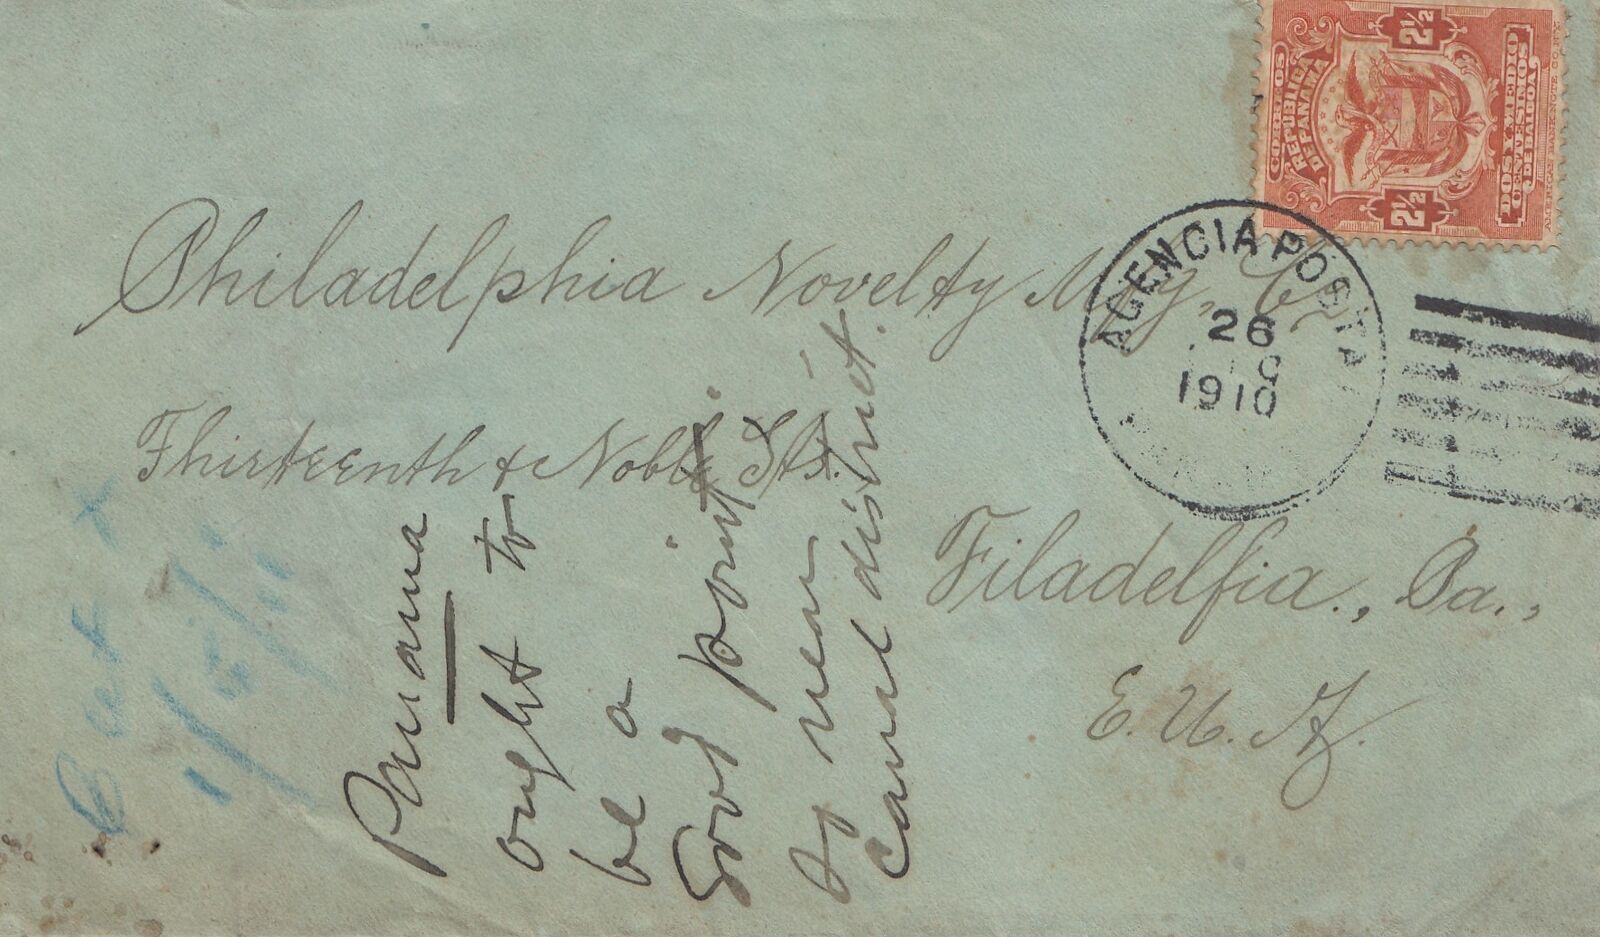 CORREOS
REPUBLICA
DE PANAMA
2½
2½
DOS Y MEDIO
CENTESIMOS
DE BALBOA
AMERICAN BANK NOTE CO. N.Y.
AGENCIA POSTAL
26
1910
Philadelphia Novelty Mfg. Co.
Thirteenth & Noble Sts.
Filadelfia., Pa.,
E. U. A.
Panama
ought to
be a
Good point
near
Canal district.